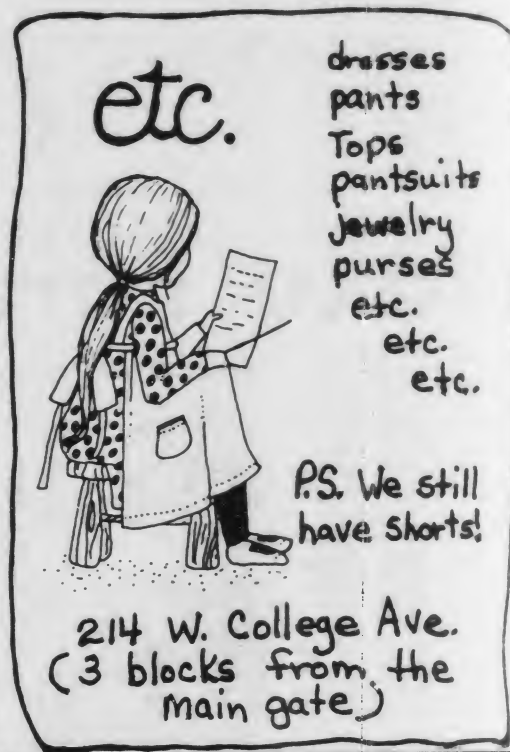 etc.
dresses
pants
Tops
pantsuits
Jewelry
purses
etc.
etc.
etc.
P.S. We still
have shorts!
214 W. College Ave.
(3 blocks from the
main gate)